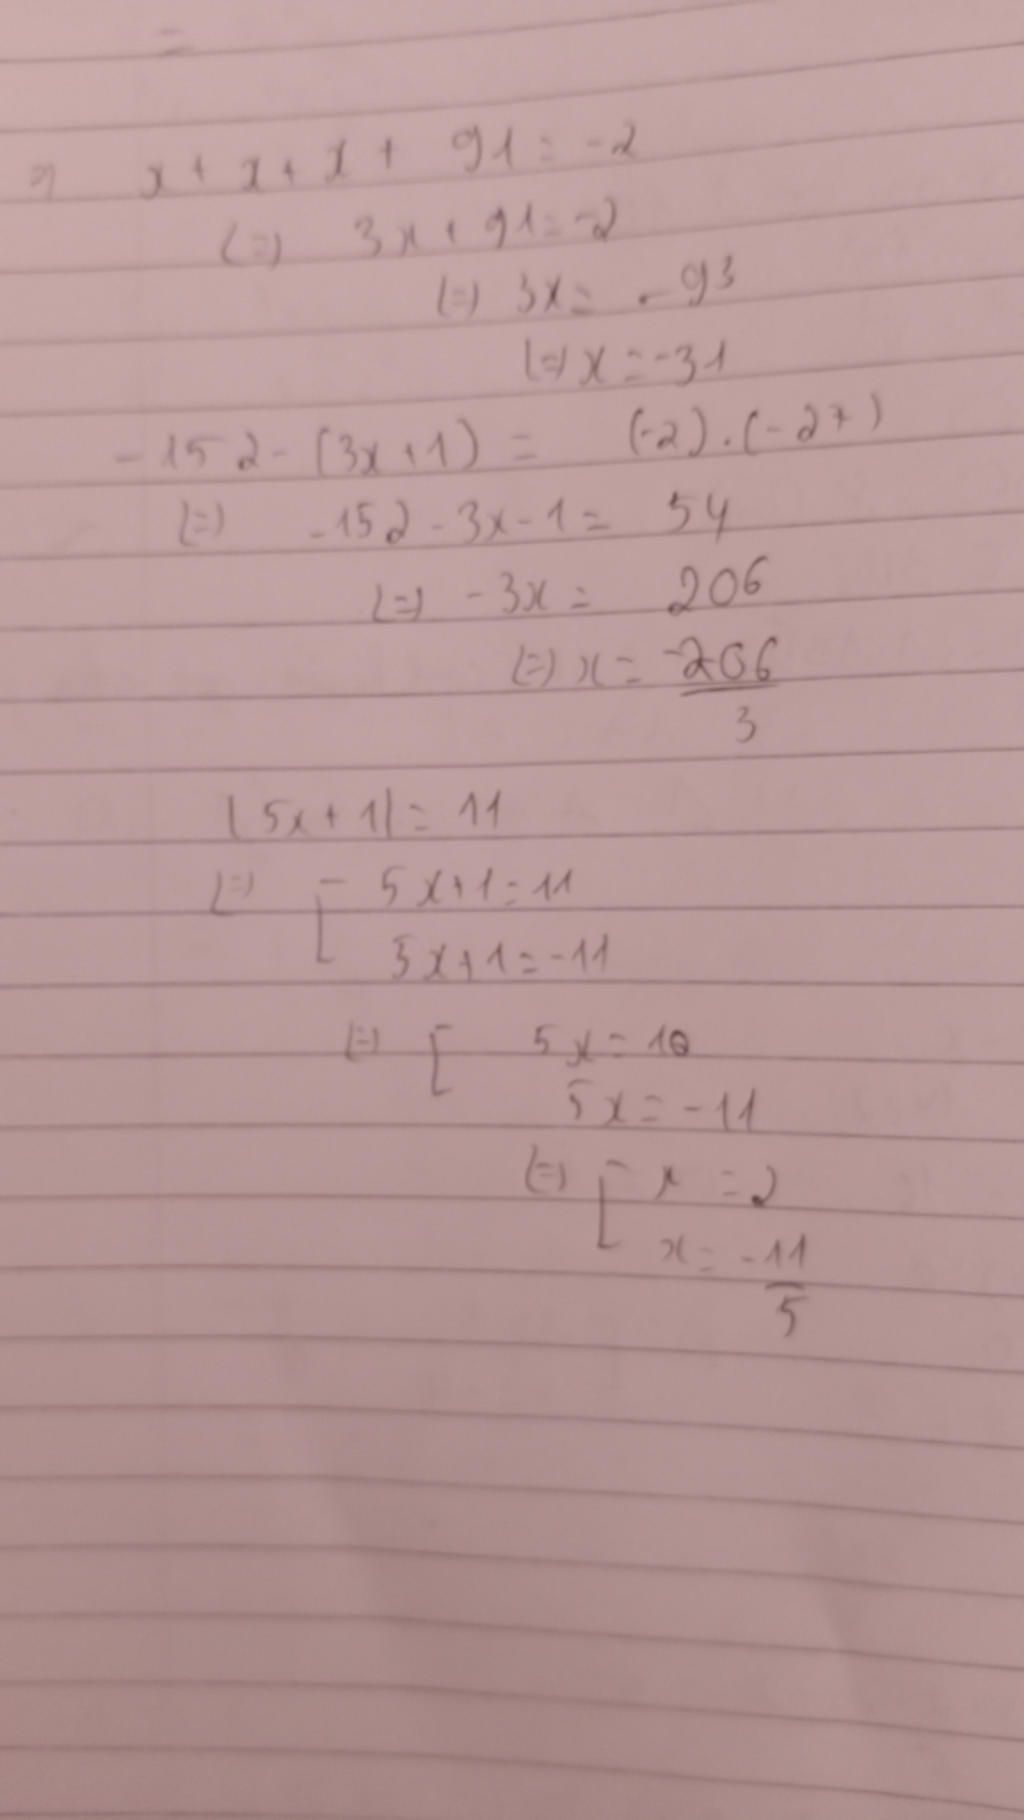 x + x + x + 91 = -2
(=) 3x + 91 = -2
(=) 3x = -93
(=) x = -31
-152 - (3x + 1) = (-2) . (-27)
(=) -152 - 3x - 1 = 54
(=) -3x = 206
(=) x = -206
3
|5x + 1| = 11
(=) [ 5x + 1 = 11
5x + 1 = -11
(=) [ 5x = 10
5x = -11
(=) [ x = 2
x = -11
5